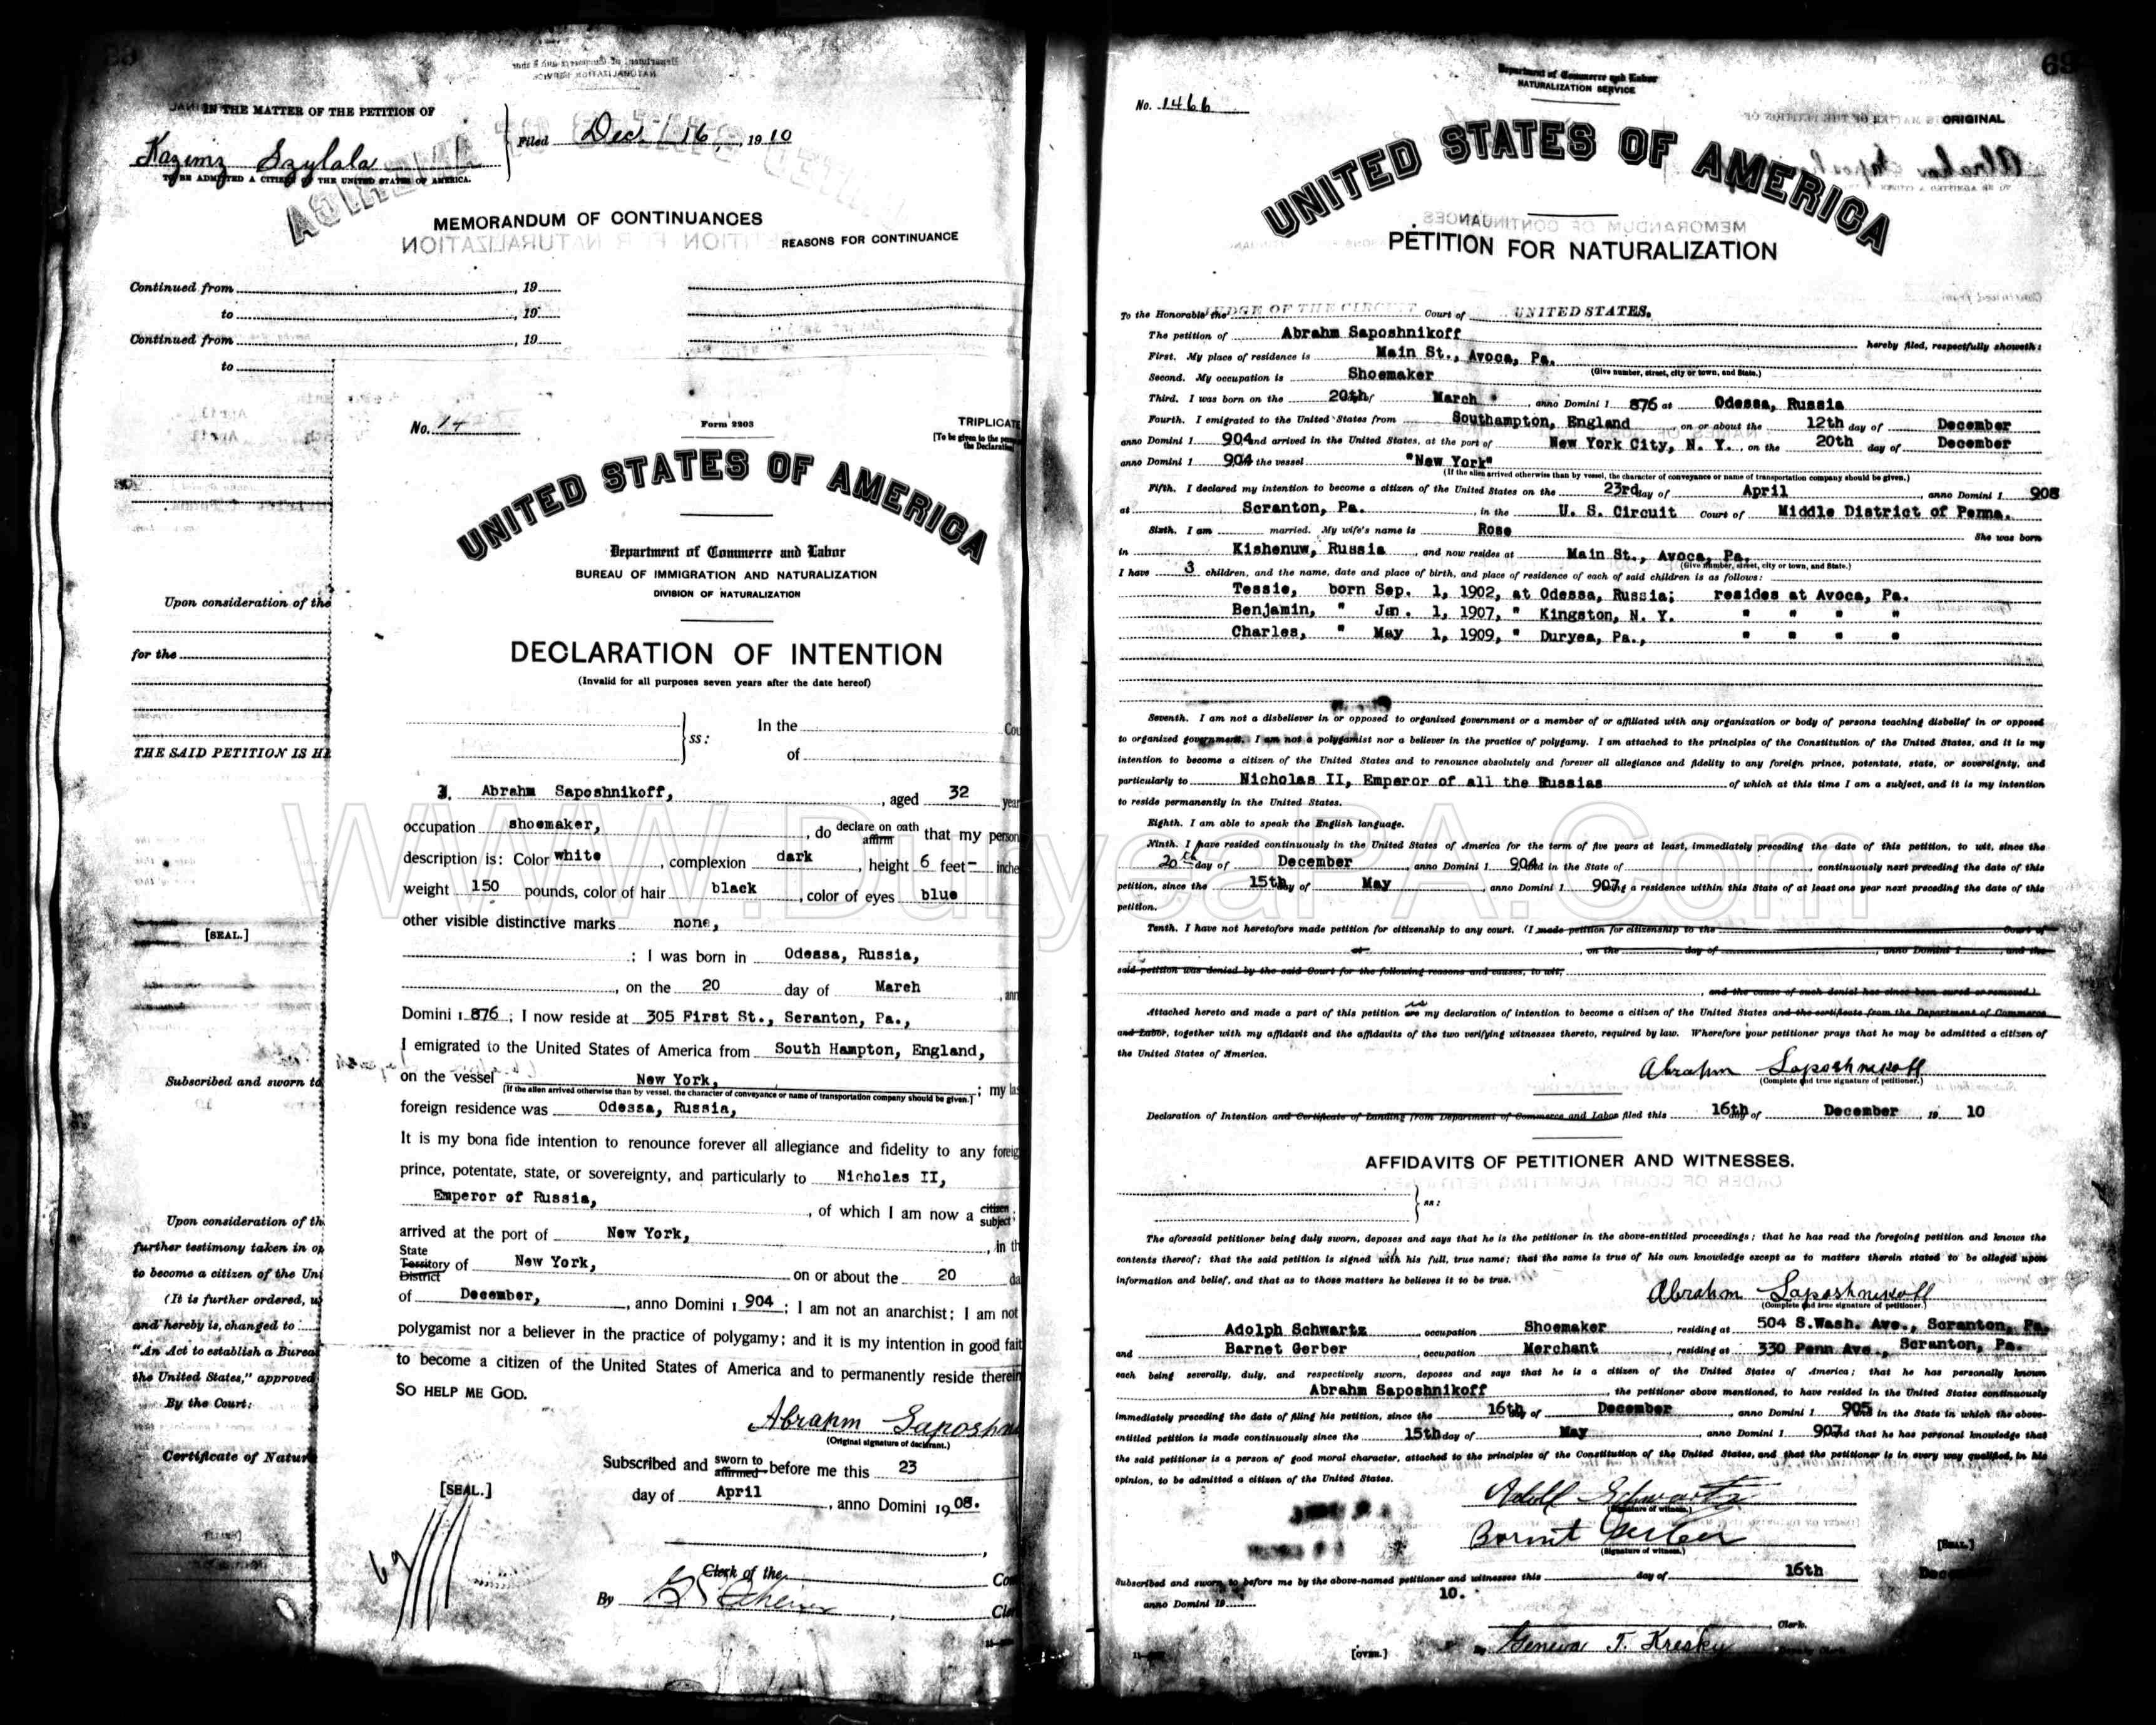 IN THE MATTER OF THE PETITION OF
Kazimz Szylala
TO BE ADMITTED A CITIZEN OF THE UNITED STATES OF AMERICA.
Filed Dec. 16, 1910
MEMORANDUM OF CONTINUANCES
REASONS FOR CONTINUANCE
Continued from , 19
to , 19
Continued from , 19
to
Upon consideration of the
for the
THE SAID PETITION IS HE
[SEAL.]
Subscribed and sworn to
Upon consideration of th
further testimony taken in op
to become a citizen of the Uni
(It is further ordered, u
and hereby is, changed to
"An Act to establish a Bureau
the United States," approved
By the Court:
Certificate of Natur
No. 14
Form 2203
TRIPLICATE
[To be given to the person
the Declaration
UNITED STATES OF AMERICA
Department of Commerce and Labor
BUREAU OF IMMIGRATION AND NATURALIZATION
DIVISION OF NATURALIZATION
DECLARATION OF INTENTION
(Invalid for all purposes seven years after the date hereof)
ss: In the Cou
of
I, Abrahm Saposhnikoff, , aged 32 year
occupation shoemaker, , do declare on oath affirm that my person
description is: Color white , complexion dark , height 6 feet - inche
weight 150 pounds, color of hair black , color of eyes blue
other visible distinctive marks none,
; I was born in Odessa, Russia,
, on the 20 day of March , ann
Domini 1 876 ; I now reside at 305 First St., Scranton, Pa.,
I emigrated to the United States of America from South Hampton, England,
on the vessel New York, ; my las
[If the alien arrived otherwise than by vessel, the character of conveyance or name of transportation company should be given.]
foreign residence was Odessa, Russia,
It is my bona fide intention to renounce forever all allegiance and fidelity to any foreig
prince, potentate, state, or sovereignty, and particularly to Nicholas II,
Emperor of Russia, , of which I am now a citizen subject;
arrived at the port of New York, , in th
State Territory District of New York, on or about the 20 da
of December, , anno Domini 1 904 ; I am not an anarchist; I am not
polygamist nor a believer in the practice of polygamy; and it is my intention in good fait
to become a citizen of the United States of America and to permanently reside therein
SO HELP ME GOD.
Abrahm Saposhn
(Original signature of declarant.)
Subscribed and sworn to affirmed before me this 23
[SEAL.] day of April , anno Domini 19 08.
Clerk of the Co
By , Cle
69
69
No. 1466
Department of Commerce and Labor
NATURALIZATION SERVICE
ORIGINAL
UNITED STATES OF AMERICA
PETITION FOR NATURALIZATION
To the Honorable the JUDGE OF THE CIRCUIT Court of UNITED STATES.
The petition of Abrahm Saposhnikoff hereby filed, respectfully showeth:
First. My place of residence is Main St., Avoca, Pa.
(Give number, street, city or town, and State.)
Second. My occupation is Shoemaker
Third. I was born on the 20th of March , anno Domini 1 876 at Odessa, Russia
Fourth. I emigrated to the United States from Southampton, England , on or about the 12th day of December
anno Domini 1 904 and arrived in the United States, at the port of New York City, N. Y. , on the 20th day of December
anno Domini 1 904 the vessel "New York"
(If the alien arrived otherwise than by vessel, the character of conveyance or name of transportation company should be given.)
Fifth. I declared my intention to become a citizen of the United States on the 23rd day of April , anno Domini 1 908
at Scranton, Pa. , in the U. S. Circuit Court of Middle District of Penna.
Sixth. I am married. My wife's name is Rose She was born
in Kishenuw, Russia , and now resides at Main St., Avoca, Pa.
(Give number, street, city or town, and State.)
I have 3 children, and the name, date and place of birth, and place of residence of each of said children is as follows:
Tessie, born Sep. 1, 1902, at Odessa, Russia; resides at Avoca, Pa.
Benjamin, " Jan. 1, 1907, " Kingston, N. Y. " " " "
Charles, " May 1, 1909, " Duryea, Pa., " " " "
Seventh. I am not a disbeliever in or opposed to organized government or a member of or affiliated with any organization or body of persons teaching disbelief in or opposed
to organized government. I am not a polygamist nor a believer in the practice of polygamy. I am attached to the principles of the Constitution of the United States, and it is my
intention to become a citizen of the United States and to renounce absolutely and forever all allegiance and fidelity to any foreign prince, potentate, state, or sovereignty, and
particularly to Nicholas II, Emperor of all the Russias of which at this time I am a subject, and it is my intention
to reside permanently in the United States.
Eighth. I am able to speak the English language.
Ninth. I have resided continuously in the United States of America for the term of five years at least, immediately preceding the date of this petition, to wit, since the
20th day of December , anno Domini 1 904 and in the State of , continuously next preceding the date of this
petition, since the 15th day of May , anno Domini 1 907 being a residence within this State of at least one year next preceding the date of this
petition.
Tenth. I have not heretofore made petition for citizenship to any court. (I made petition for citizenship to the Court of
at , on the day of , anno Domini 1 , and the
said petition was denied by the said Court for the following reasons and causes, to wit,
, and the cause of such denial has since been cured or removed.)
Attached hereto and made a part of this petition are is my declaration of intention to become a citizen of the United States and the certificate from the Department of Commerce
and Labor, together with my affidavit and the affidavits of the two verifying witnesses thereto, required by law. Wherefore your petitioner prays that he may be admitted a citizen of
the United States of America.
Abrahm Saposhnikoff
(Complete and true signature of petitioner.)
Declaration of Intention and Certificate of Landing from Department of Commerce and Labor filed this 16th day of December , 19 10
AFFIDAVITS OF PETITIONER AND WITNESSES.
ss:
The aforesaid petitioner being duly sworn, deposes and says that he is the petitioner in the above-entitled proceedings; that he has read the foregoing petition and knows the
contents thereof; that the said petition is signed with his full, true name; that the same is true of his own knowledge except as to matters therein stated to be alleged upon
information and belief, and that as to those matters he believes it to be true.
Abrahm Saposhnikoff
(Complete and true signature of petitioner.)
Adolph Schwartz , occupation Shoemaker , residing at 504 S.Wash. Ave., Scranton, Pa.
and Barnet Gerber , occupation Merchant , residing at 330 Penn Ave., Scranton, Pa.
each being severally, duly, and respectively sworn, deposes and says that he is a citizen of the United States of America; that he has personally known
Abrahm Saposhnikoff , the petitioner above mentioned, to have resided in the United States continuously
immediately preceding the date of filing his petition, since the 16th day of December , anno Domini 1 905 in the State in which the above-
entitled petition is made continuously since the 15th day of May , anno Domini 1 907 and that he has personal knowledge that
the said petitioner is a person of good moral character, attached to the principles of the Constitution of the United States, and that the petitioner is in every way qualified, in his
opinion, to be admitted a citizen of the United States.
Adolf Schwartz
(Signature of witness.)
Barnet Gerber
(Signature of witness.)
[SEAL.]
Subscribed and sworn to before me by the above-named petitioner and witnesses this day of 16th Dece
anno Domini 19 10.
Clerk.
[OVER.] By Geneva T. Kresky Deputy Clerk.
WWW.DuryeaPA.Com